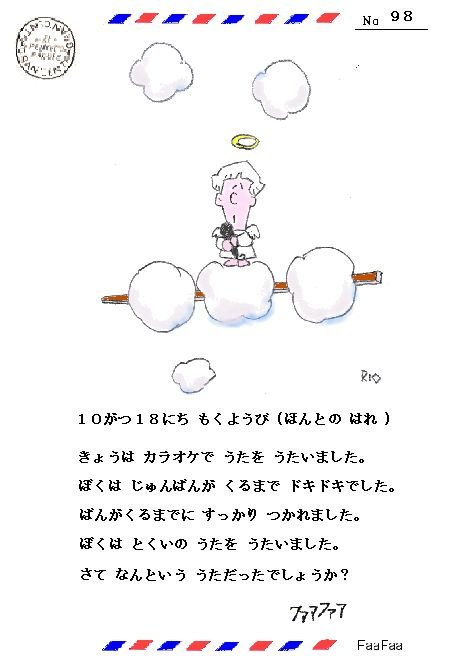 No 98
RIO
10がつ18にち もくようび (ほんとの はれ )
きょうは カラオケで うたを うたいました。
ぼくは じゅんばんが くるまで ドキドキでした。
ばんがくるまでに すっかり つかれました。
ぼくは とくいの うたを うたいました。
さて なんという うただったでしょうか?
ファァファァ
FaaFaa